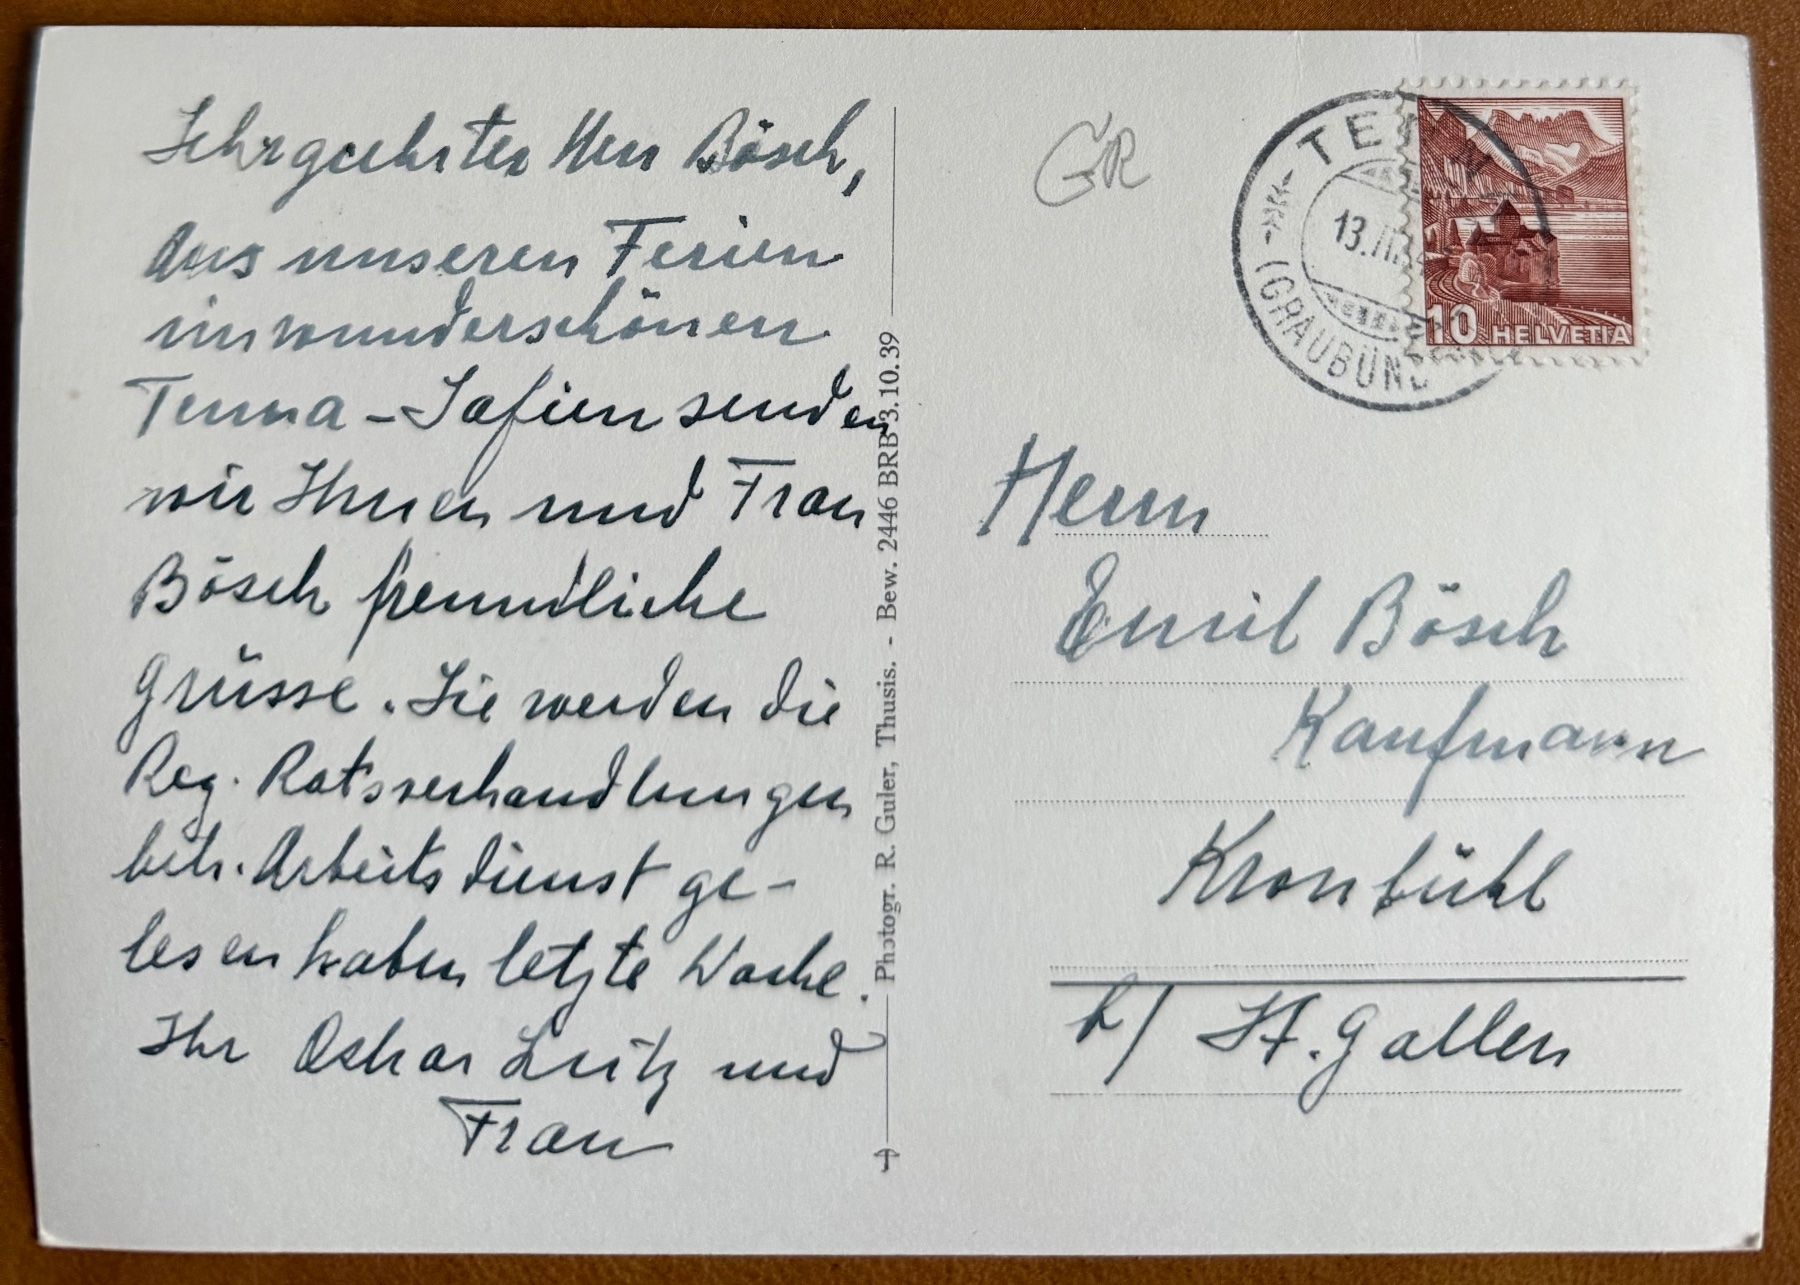 Sehrgeehrter Herr Bösch,
Aus unseren Ferien
im wunderschönen
Tenna - Safien senden
wir Ihnen und Frau
Bösch freundliche
Grüsse. Sie werden die
Reg. Ratsverhandlungen
betr. Arbeitsdienst ge-
lesen haben letzte Woche.
Ihr Oskar Lutz und
Frau
Photogr. R. Guler, Thusis. - Bew. 2446 BRB 3. 10. 39
GR
TENNA
13.II.4
(GRAUBÜND
10 HELVETIA
Herrn
Emil Bösch
Kaufmann
Kronbühl
b/ St. Gallen